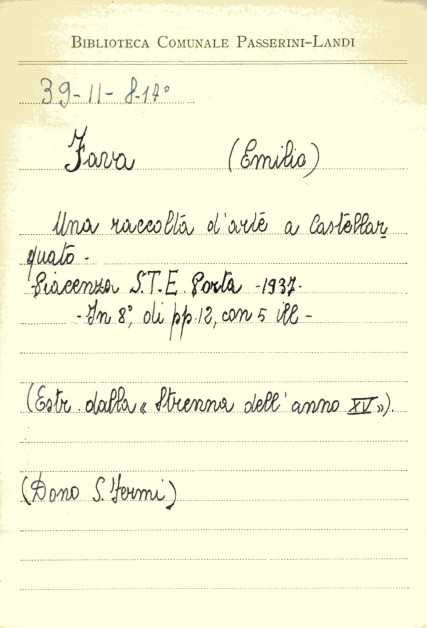 BIBLIOTECA COMUNALE PASSERINI-LANDI
39-11-8-17°
Fava (Emilio)
Una raccolta d'arte a Castellar
quato -
Piacenza S.T.E. Porta - 1937-
- In 8°, di pp. 12, con 5 ill -
(Estr. dalla « Strenna dell' anno XV »).
(Dono S. Fermi)